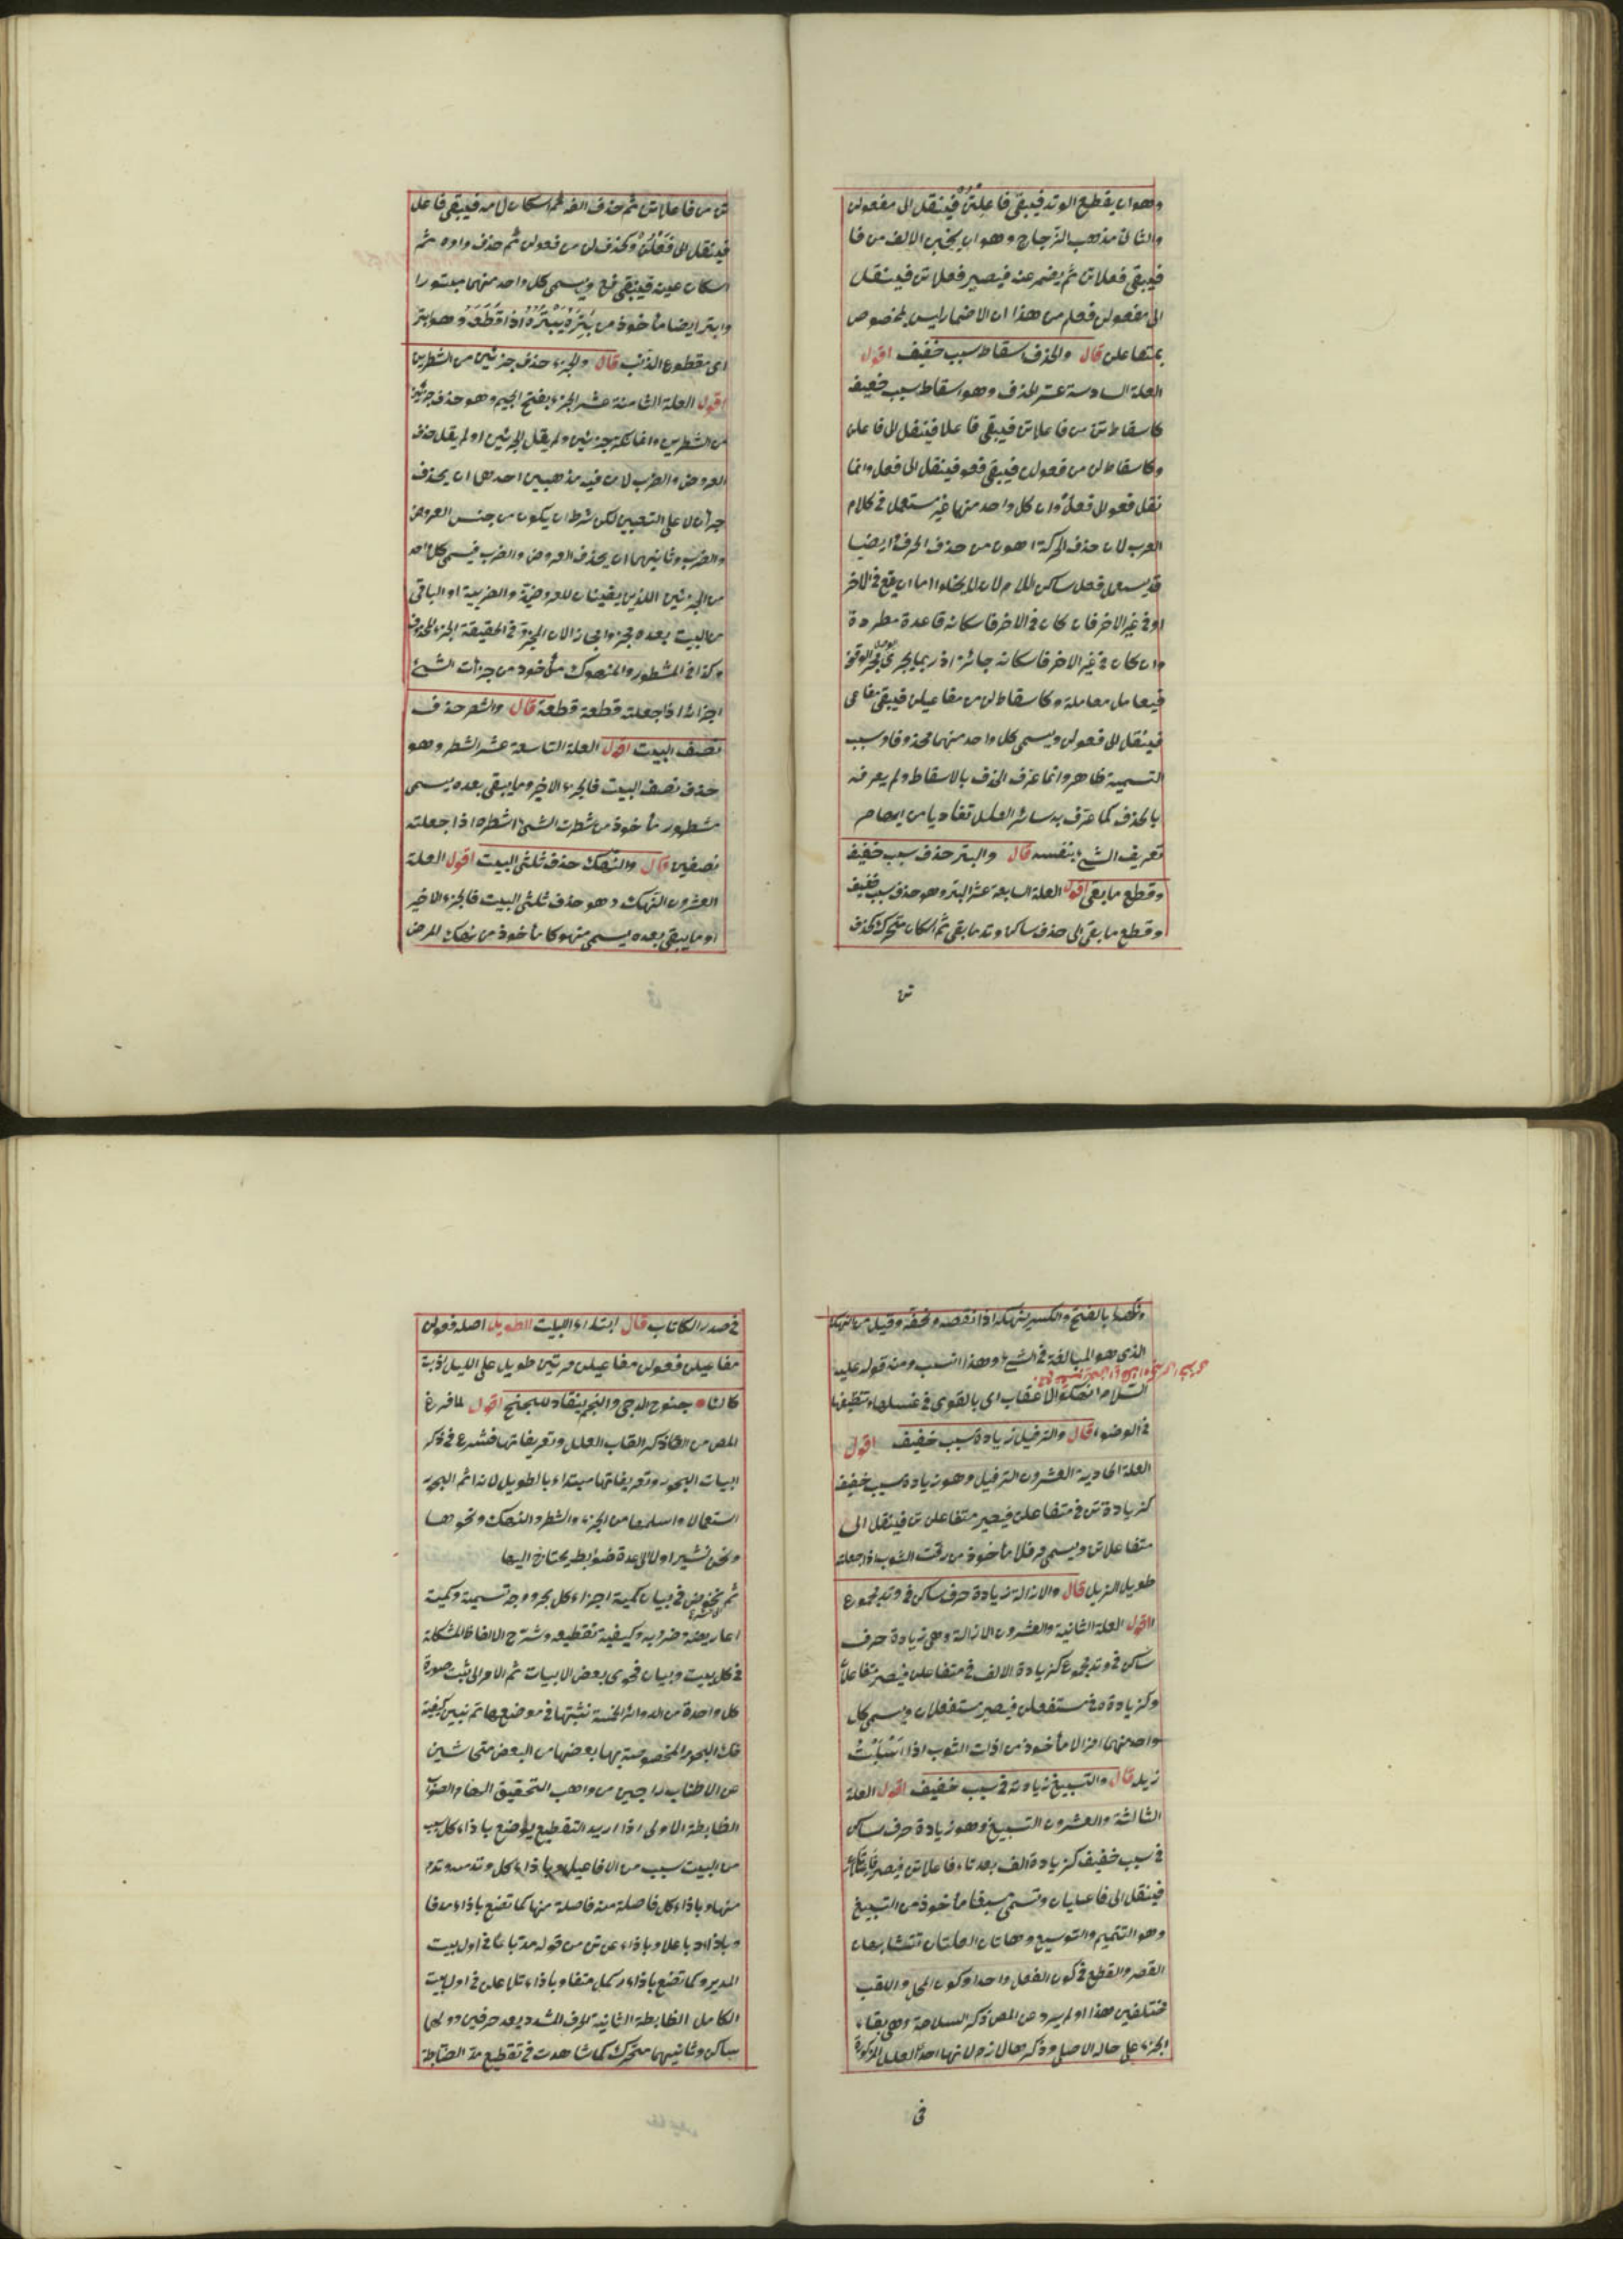 وهوان يقطع الوتد فيبقى فاعلتن فينقل الى مفعولن
والثالث مذهب الزجاج وهو ان يخبن الالف من فا
فيبقى فعلاتن ثم يضمر عنه فيصير فعلاتن فينقل
الى مفعولن فعلم من هذا ان الاضمار ليس بمخصوص
بمتفاعلن قال والحذف اسقاط سبب خفيف اقول
العلة السادسة عشر الحذف وهو اسقاط سبب خفيف
كاسقاط تن من فاعلاتن فيبقى فاعلا فينقل الى فاعلن
وكاسقاط لن من فعولن فيبقى فعو فينقل الى فعل وانما
نقل فعو الى فعل وان كل واحد منها غير مستعمل في كلام
العرب لان حذف الحركة اهون من حذف الحرف وايضا
قد يستعمل فعل ساكن اللام لان لا يخلوا اما ان يقع في الاخر
او في غير الاخر فان كان في الاخر فاسكانه قاعدة مطردة
وان كان في غير الاخر فاسكانه جائز اذ ربما يجرى مجرى الوقف
فيعامل معاملة وكاسقاط لن من مفاعيلن فيبقى مفاعى
فينقل الى فعولن ويسمى كل واحد منهما محذوفا وسبب
التسمية ظاهر وانما عرف الحذف بالاسقاط ولم يعرفه
بالحذف كما عرف به سائر العلل تفاديا من ايهام
تعريف الشئ بنفسه قال والبتر حذف سبب خفيف
وقطع ما بقى اقول العلة السابعة عشر البتر وهو حذف سبب خفيف
وقطع ما بقى الى حذف ساكن وتد ما بقى ثم اسكان متحركه كحذف
تن
تن من فاعلاتن ثم حذف الفه ثم اسكان لامه فيبقى فاعل
فينقل الى فعلن وكحذف لن من فعولن ثم حذف واوه ثم
اسكان عينه فيبقى فع ويسمى كل واحد منهما مبتورا
وابتر ايضا مأخوذ من بتره يبتره اذا قطعه وهو ابتر
اى مقطوع الذنب قال والجزء حذف جزئين من الشطرين
اقول العلة الثامنة عشر الجزء بفتح الجيم وهو حذف جزئين
من الشطرين وانما نكر جزئين ولم يقل الجزئين او لم يقل حذف
العروض والضرب لان فيه مذهبين احدهما ان يحذف
جزأن لا على التعيين لكن شرط ان يكون من جنس العروض
والضرب وثانيهما ان يحذف العروض والضرب فيسمى كل احد
من الجزئين اللذين يقينان للعروضية والضربية او الباقى
من البيت بعده مجزوا مجازا لان المجزو في الحقيقة الجزء المحذوف
وكذا في المشطور والمنهوك مأخوذ من جزأت الشئ
اجزائا اذا جعلته قطعة قطعة قال والشطر حذف
نصف البيت اقول العلة التاسعة عشر الشطر وهو
حذف نصف البيت فالجزء الاخير وما يبقى بعده يسمى
مشطورا مأخوذ من شطرت الشئ اشطره اذا جعلته
نصفين قال والنهك حذف ثلثى البيت اقول العلة
العشرون النهك وهو حذف ثلثى البيت فالجزء الاخير
او ما يبقى بعده يسمى منهوكا مأخوذ من نهك المرض
ونهكها بالفتح والكسر ينهكه اذا نقصه ونحفه وقيل من النهك
الذى هو المبالغة في الشئ وهذا انسب ومنه قوله عليه
السلام انهكوا الاعقاب اى بالغوا في غسلها وتنظيفها
في الوضوء قال والترفيل زيادة سبب خفيف اقول
العلة الحادية العشرون الترفيل وهو زيادة سبب خفيف
كزيادة تن في متفاعلن فيصير متفاعلن تن فينقل الى
متفاعلاتن ويسمى مرفلا مأخوذ من رفلت الثوب اذا جعلته
طويل الذيل قال والاذالة زيادة حرف ساكن في وتد مجموع
اقول العلة الثانية والعشرون الاذالة وهى زيادة حرف
ساكن في وتد مجموع كزيادة الالف في متفاعلن فيصير متفاعلان
وكزيادة في مستفعلن فيصير مستفعلان ويسمى كل
واحد منهما مذالا مأخوذ من اذلت الثوب اذا اسبلت
ذيله قال والتسبيغ زيادته في سبب خفيف اقول العلة
الثالثة والعشرون التسبيغ وهو زيادة حرف ساكن
في سبب خفيف كزيادة الف بعد تاء فاعلاتن فيصير فاعلاتان
فينقل الى فاعليان وتسمى مسبغا مأخوذ من التسبيغ
وهو التتميم والتوسيع وهاتان العلتان تتشابهان
القصر والقطع في كون الفعل واحدا وكون المحل واللقب
مختلفين هذا او لم يرد عن المص ذكر السلامة وهى بقاء
الجزء على حاله الاصلى وذكرها لازم لانها احدى العلل المذكورة
في
في صدر الكتاب قال ابتداء البيت الطويل اصله فعولن
مفاعيلن فعولن مفاعيلن مرتين طويل على الليل اذ بت
كالئا جنوح الدجى والنجم ينقاد للجنح اقول لما فرغ
المص من ذكر القاب العلل وتعريفاتها فشرع في ذكر
ابيات البحور وتعريفاتها مبتداء بالطويل لانه اتم البحور
استعمالا واسلمها من الجزء والشطر والنهك ونحوها
ونحن نشير اولا الى عدة ضوابط يحتاج اليها
ثم نخوض في بيان كمية اجزاء كل بحر ووجه تسمية وكمية
اعاريضه وضروبه وكيفية تقطيعه وشرح الالفاظ المشكلة
في كل بيت وبيان فحوى بعض الابيات ثم الاولى يثبت صورة
كل واحدة من الدوائر الخمسة نثبتها في موضعها ثم نبين كيفية
فك البحور المخصوصة بها بعضها من البعض متحاشين
عن الاطناب راجين من واهب التحقيق الهام الصواب
الضابطة الاولى اذا اريد التقطيع يوضع باذاء كل سبب
من البيت سبب من الافاعيل وباذاء كل وتد منه وتد
منها وباذاء كل فاصلة منه فاصلة منها كما تضع باذاء مد فا
وباذاء باعلا وباذاء عن تن من قوله مد باعا في اول بيت
المديد وكما تضع باذاء ركمل متفا وباذاء تلا علن في اول بيت
الكامل الضابطة الثانية الحرف المشدد يعد حرفين اولهما
ساكن وثانيهما متحرك كما شاهدت في تقطيع مد الضابطة